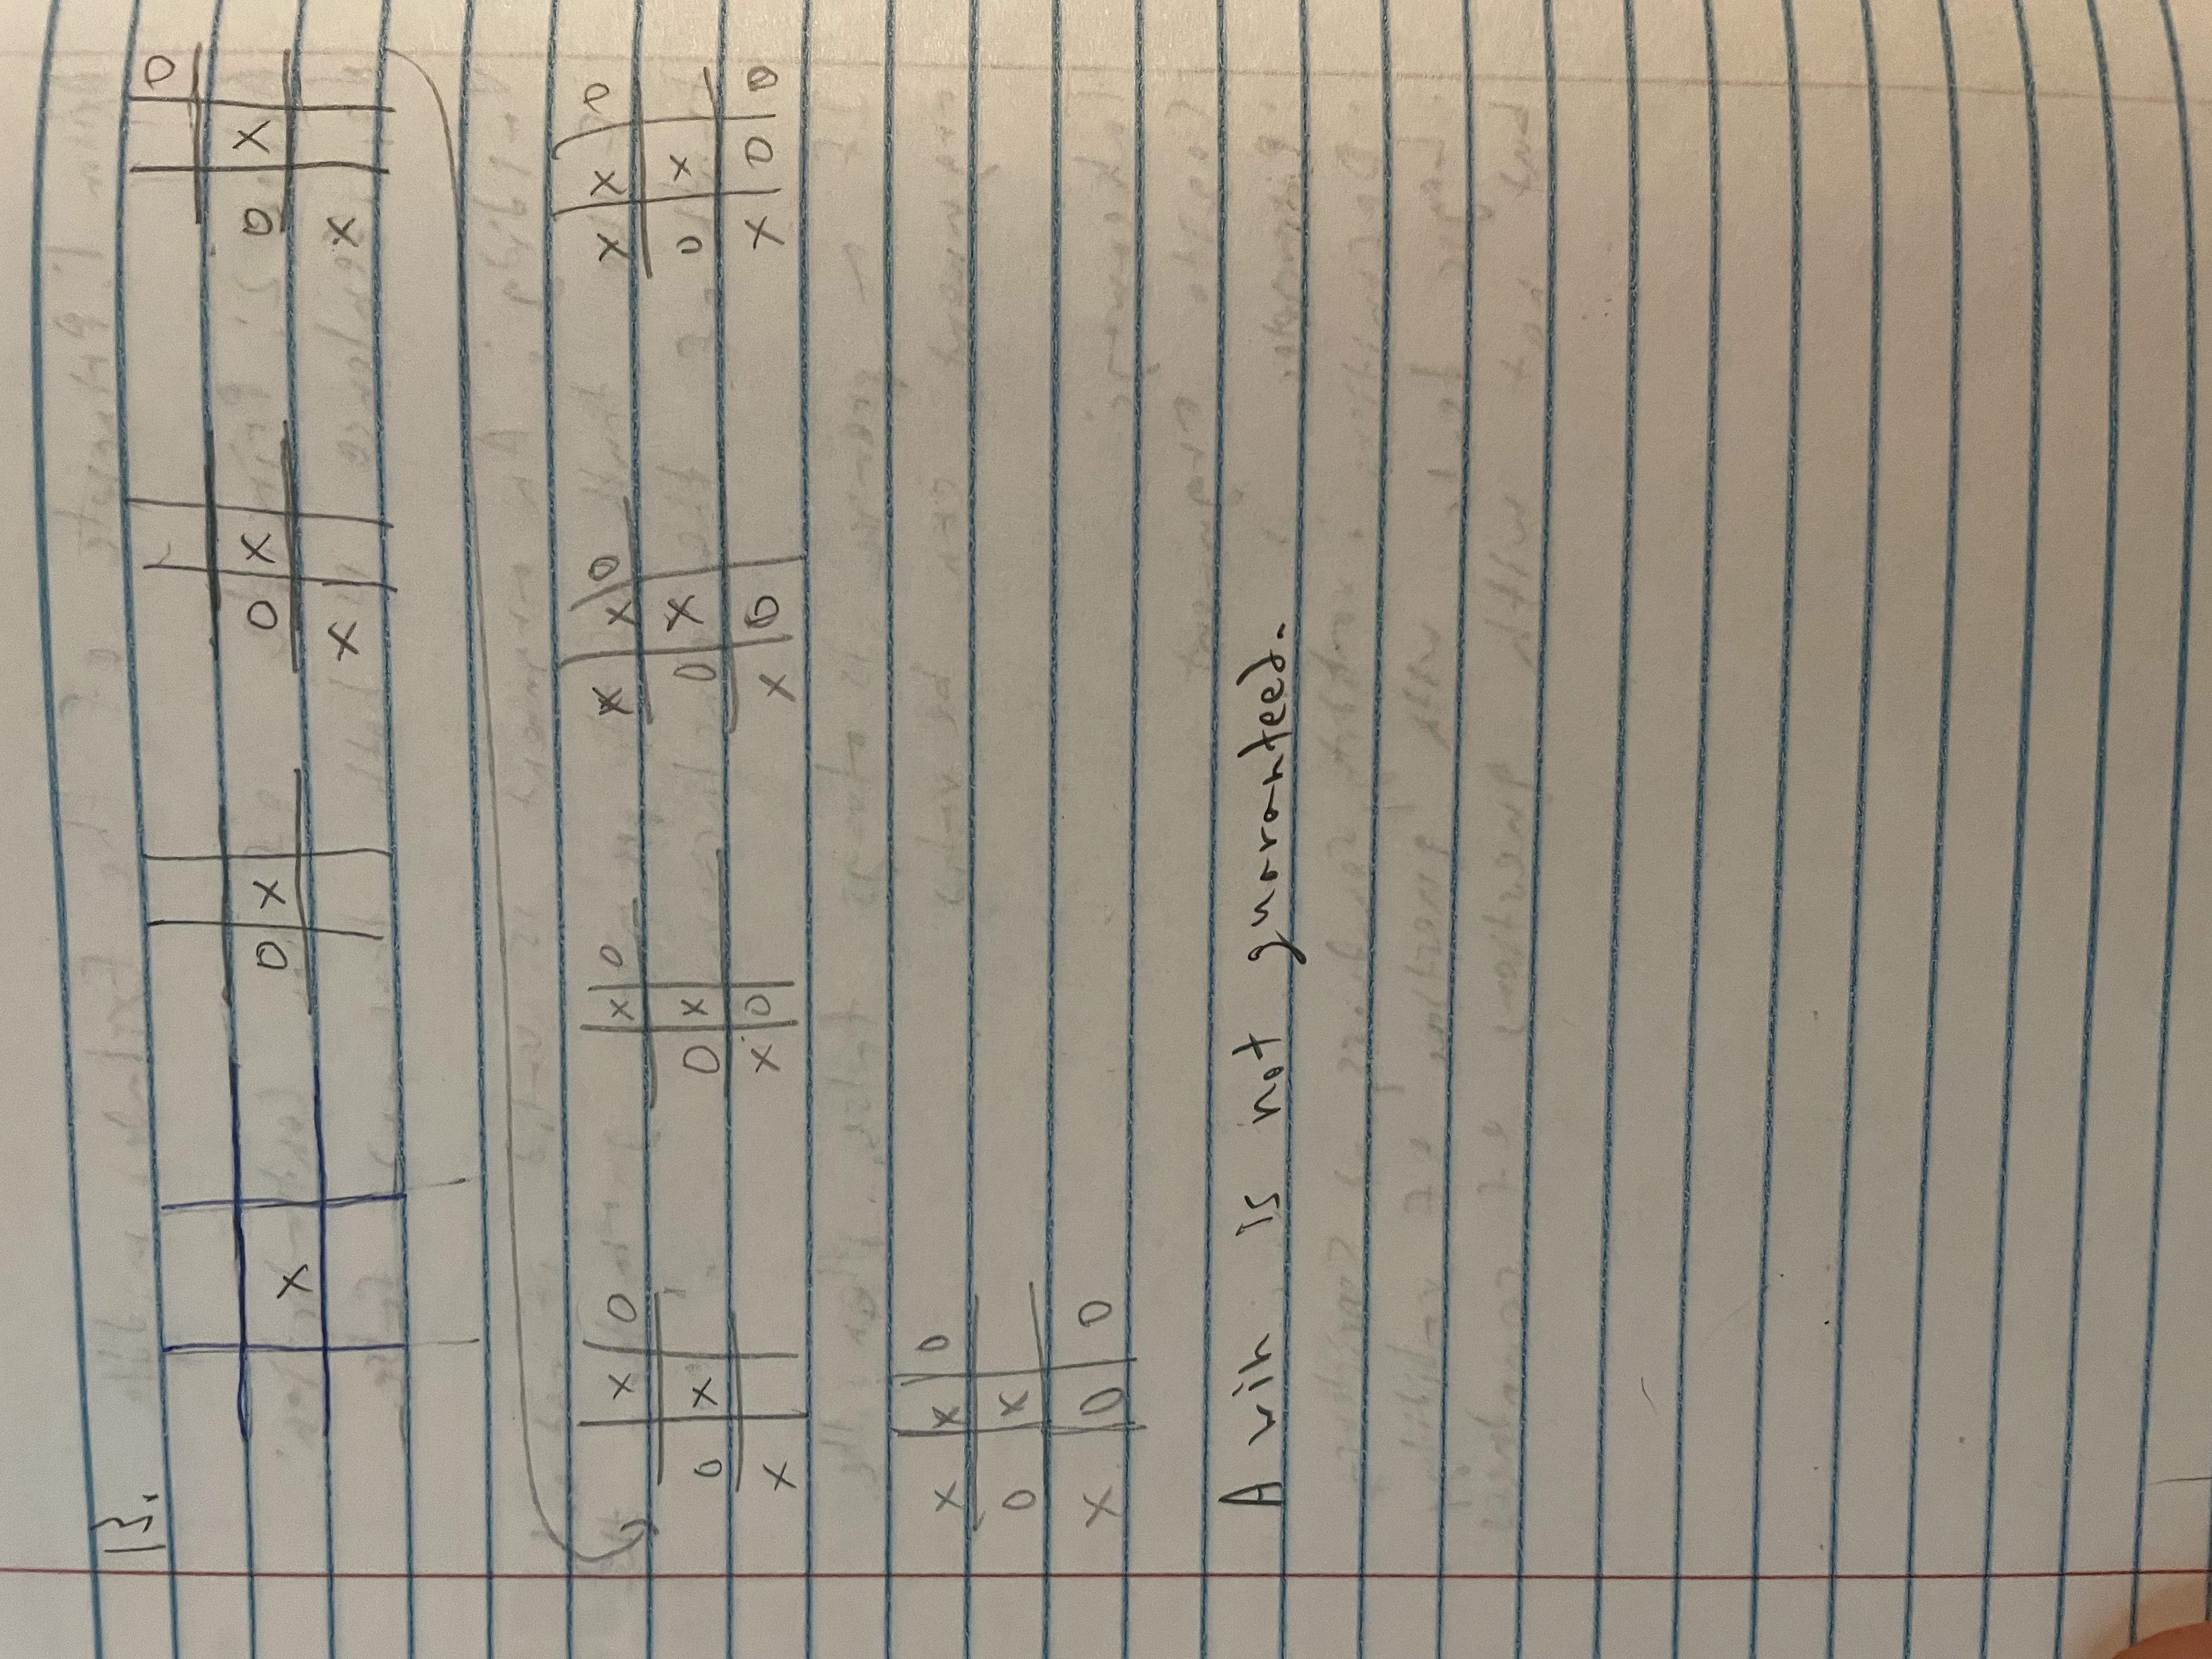 13.
X
O X
O X
X
O
O X
X
X O
O X
X
X O
O X
X O
X X O
O X
X O
X X O
O X
X O O
X X O
O X
X O O
A win is not guaranteed.